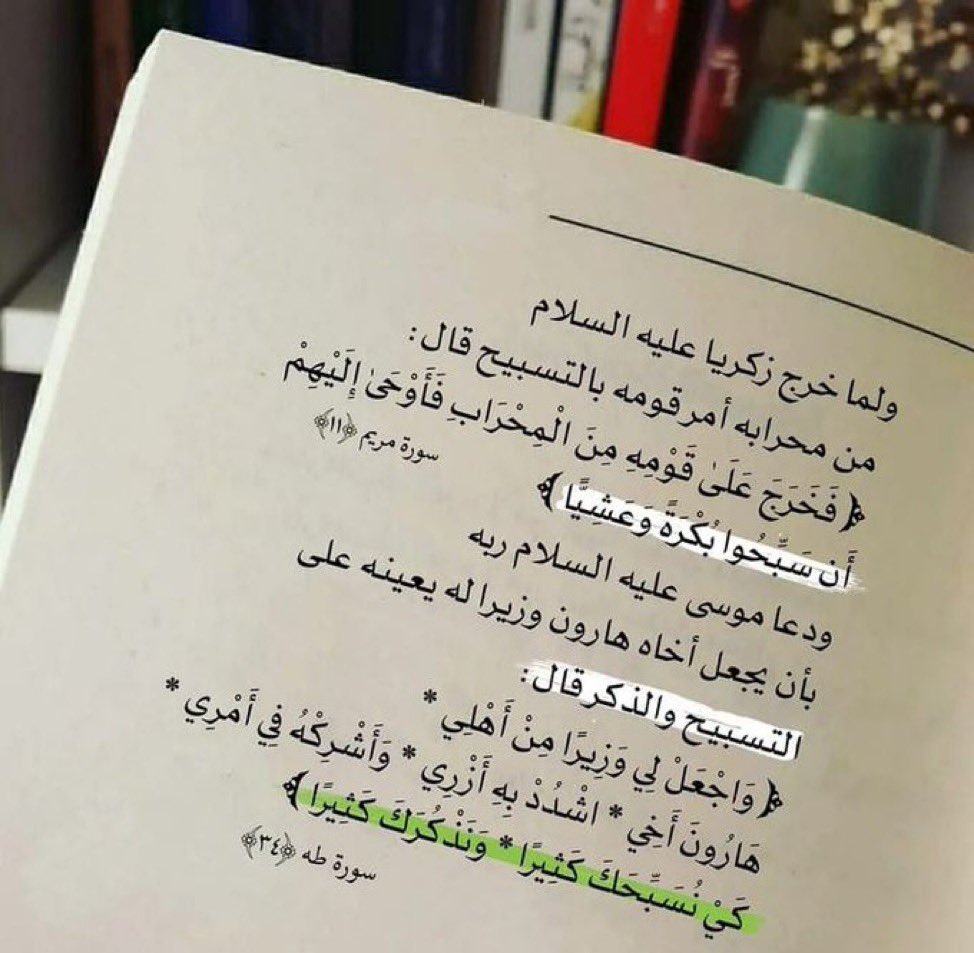 ولما خرج زكريا عليه السلام
من محرابه أمر قومه بالتسبيح قال :
﴿ فَخَرَجَ عَلَىٰ قَوْمِهِ مِنَ الْمِحْرَابِ فَأَوْحَىٰ إِلَيْهِمْ
أَن سَبِّحُوا بُكْرَةً وَعَشِيًّا ﴾ سورة مريم ﴿١١﴾
ودعا موسى عليه السلام ربه
بأن يجعل أخاه هارون وزيرا له يعينه على
التسبيح والذكر قال :
﴿ وَاجْعَلْ لِي وَزِيرًا مِنْ أَهْلِي *
هَارُونَ أَخِي * اشْدُدْ بِهِ أَزْرِي * وَأَشْرِكْهُ فِي أَمْرِي *
كَيْ نُسَبِّحَكَ كَثِيرًا * وَنَذْكُرَكَ كَثِيرًا ﴾
سورة طه ﴿٣٤﴾